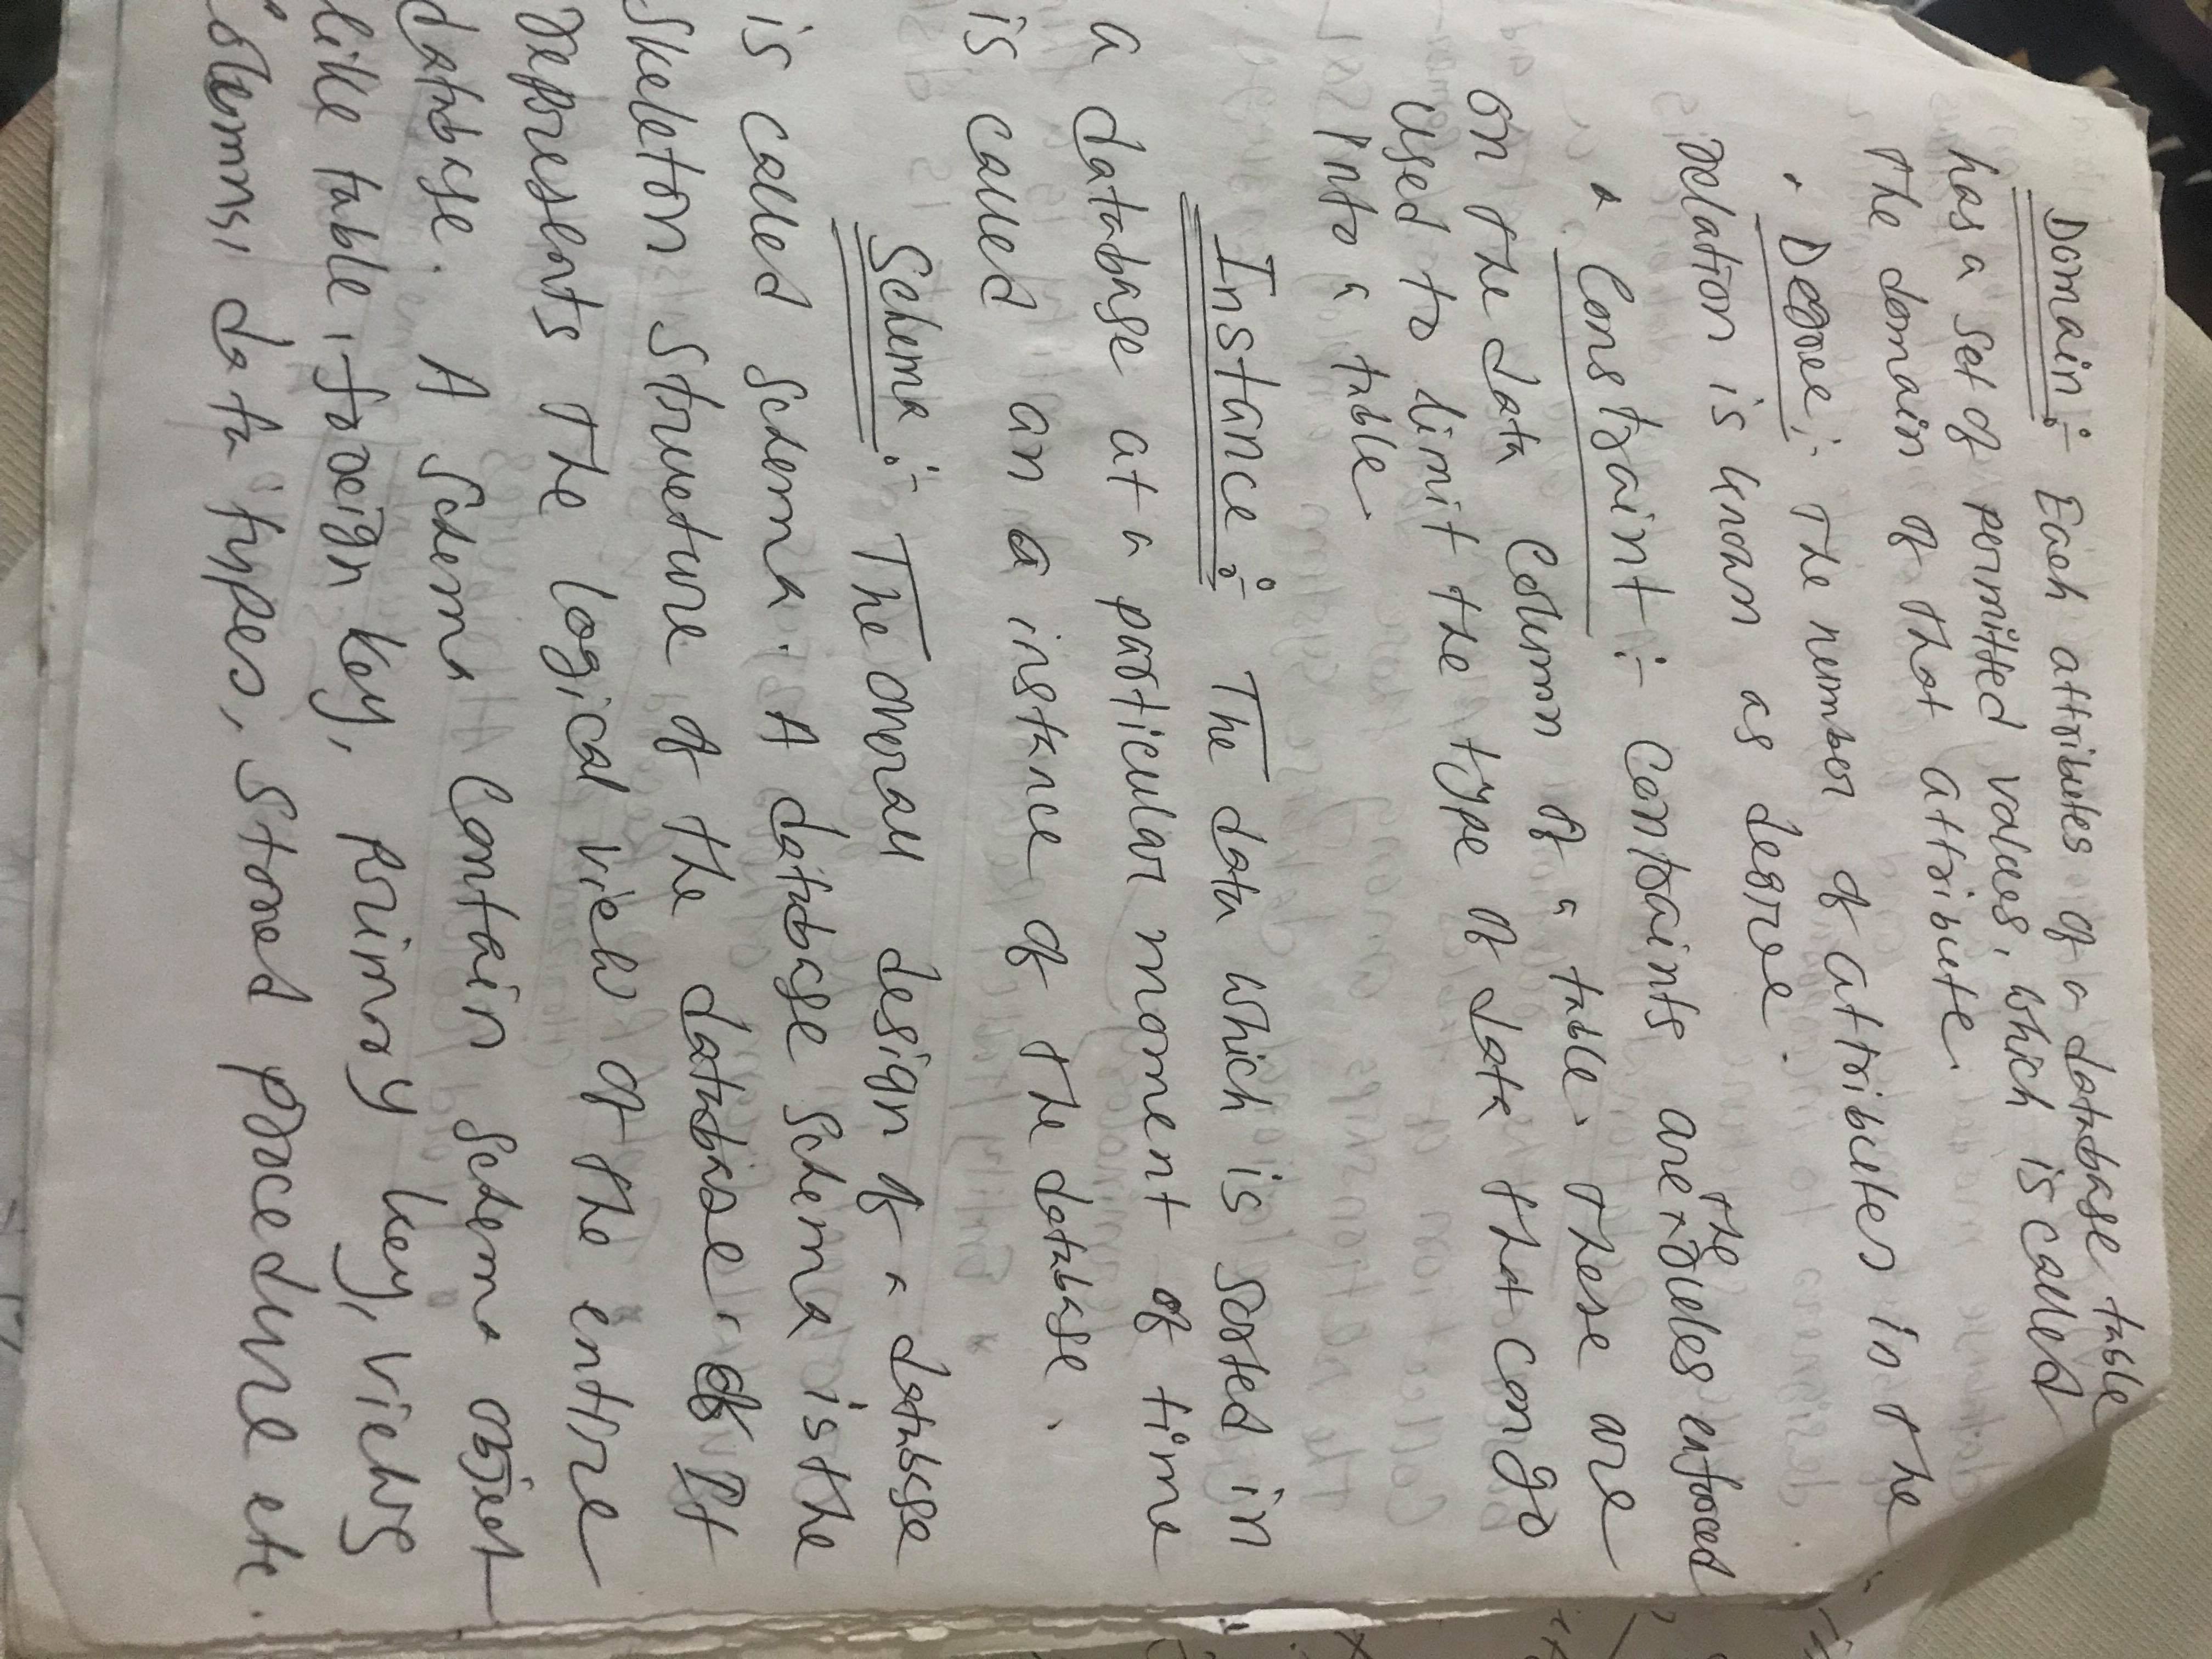 Domain :- Each attributes of a database table
has a set of permitted values, which is called
the domain of that attribute.
• Degree :- The number of attributes in the
relation is known as degree.
• Constraint :- Contraints are the rules enforced
on the data column of a table. These are
used to limit the type of data that can go
into a table.
Instance :- The data which is sorted in
a database at a particular moment of time
is called an a instance of the database.
Schema :- The overall design of a database
is called schema. A database schema is the
skeleton structure of the database. It
represents the logical view of the entire
database. A schema contain schema object
like table, foreign key, primary key, views
columns, data types, stored procedure etc.